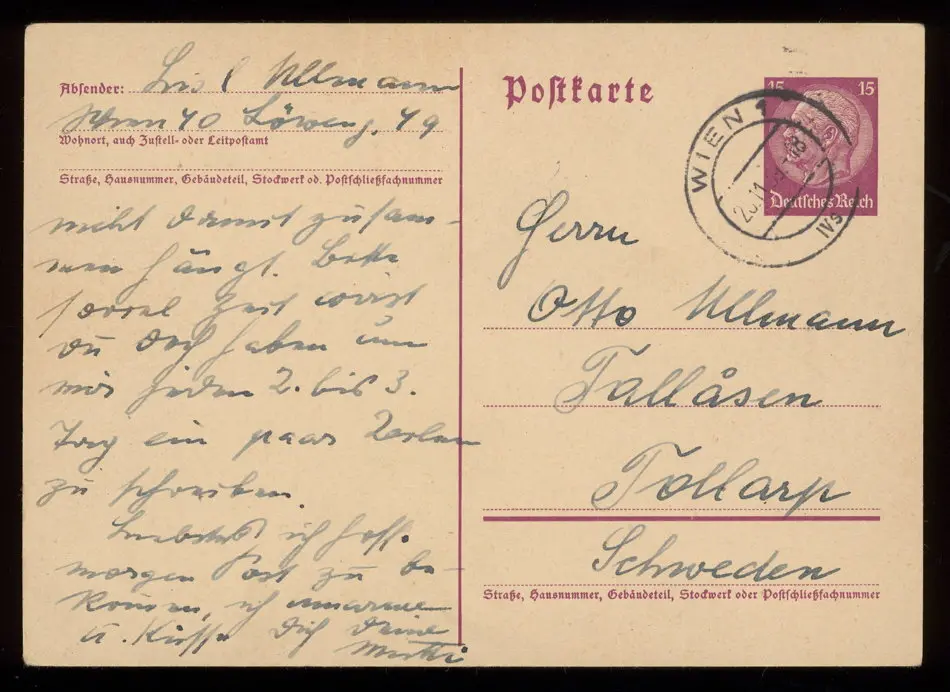 Absender: Lisl Ullmann
Wien 40 Löweng. 49
Wohnort, auch Zustell- oder Leitpostamt
Straße, Hausnummer, Gebäudeteil, Stockwerk od. Postschließfachnummer
nicht damit zusam-
men hängt. Bitte
soviel Zeit wirst
du doch haben um
mir jeden 2. bis 3.
Tag ein paar Zeilen
zu schreiben.
ich hoffe
morgen Post zu be-
kommen, ich umarme
u. Küsse Dich Deine
Mutti
Postkarte
15 15
Deutsches Reich
WIEN
IVs
Herrn
Otto Ullmann
Tallåsen
Tollarp
Schweden
Straße, Hausnummer, Gebäudeteil, Stockwerk oder Postschließfachnummer